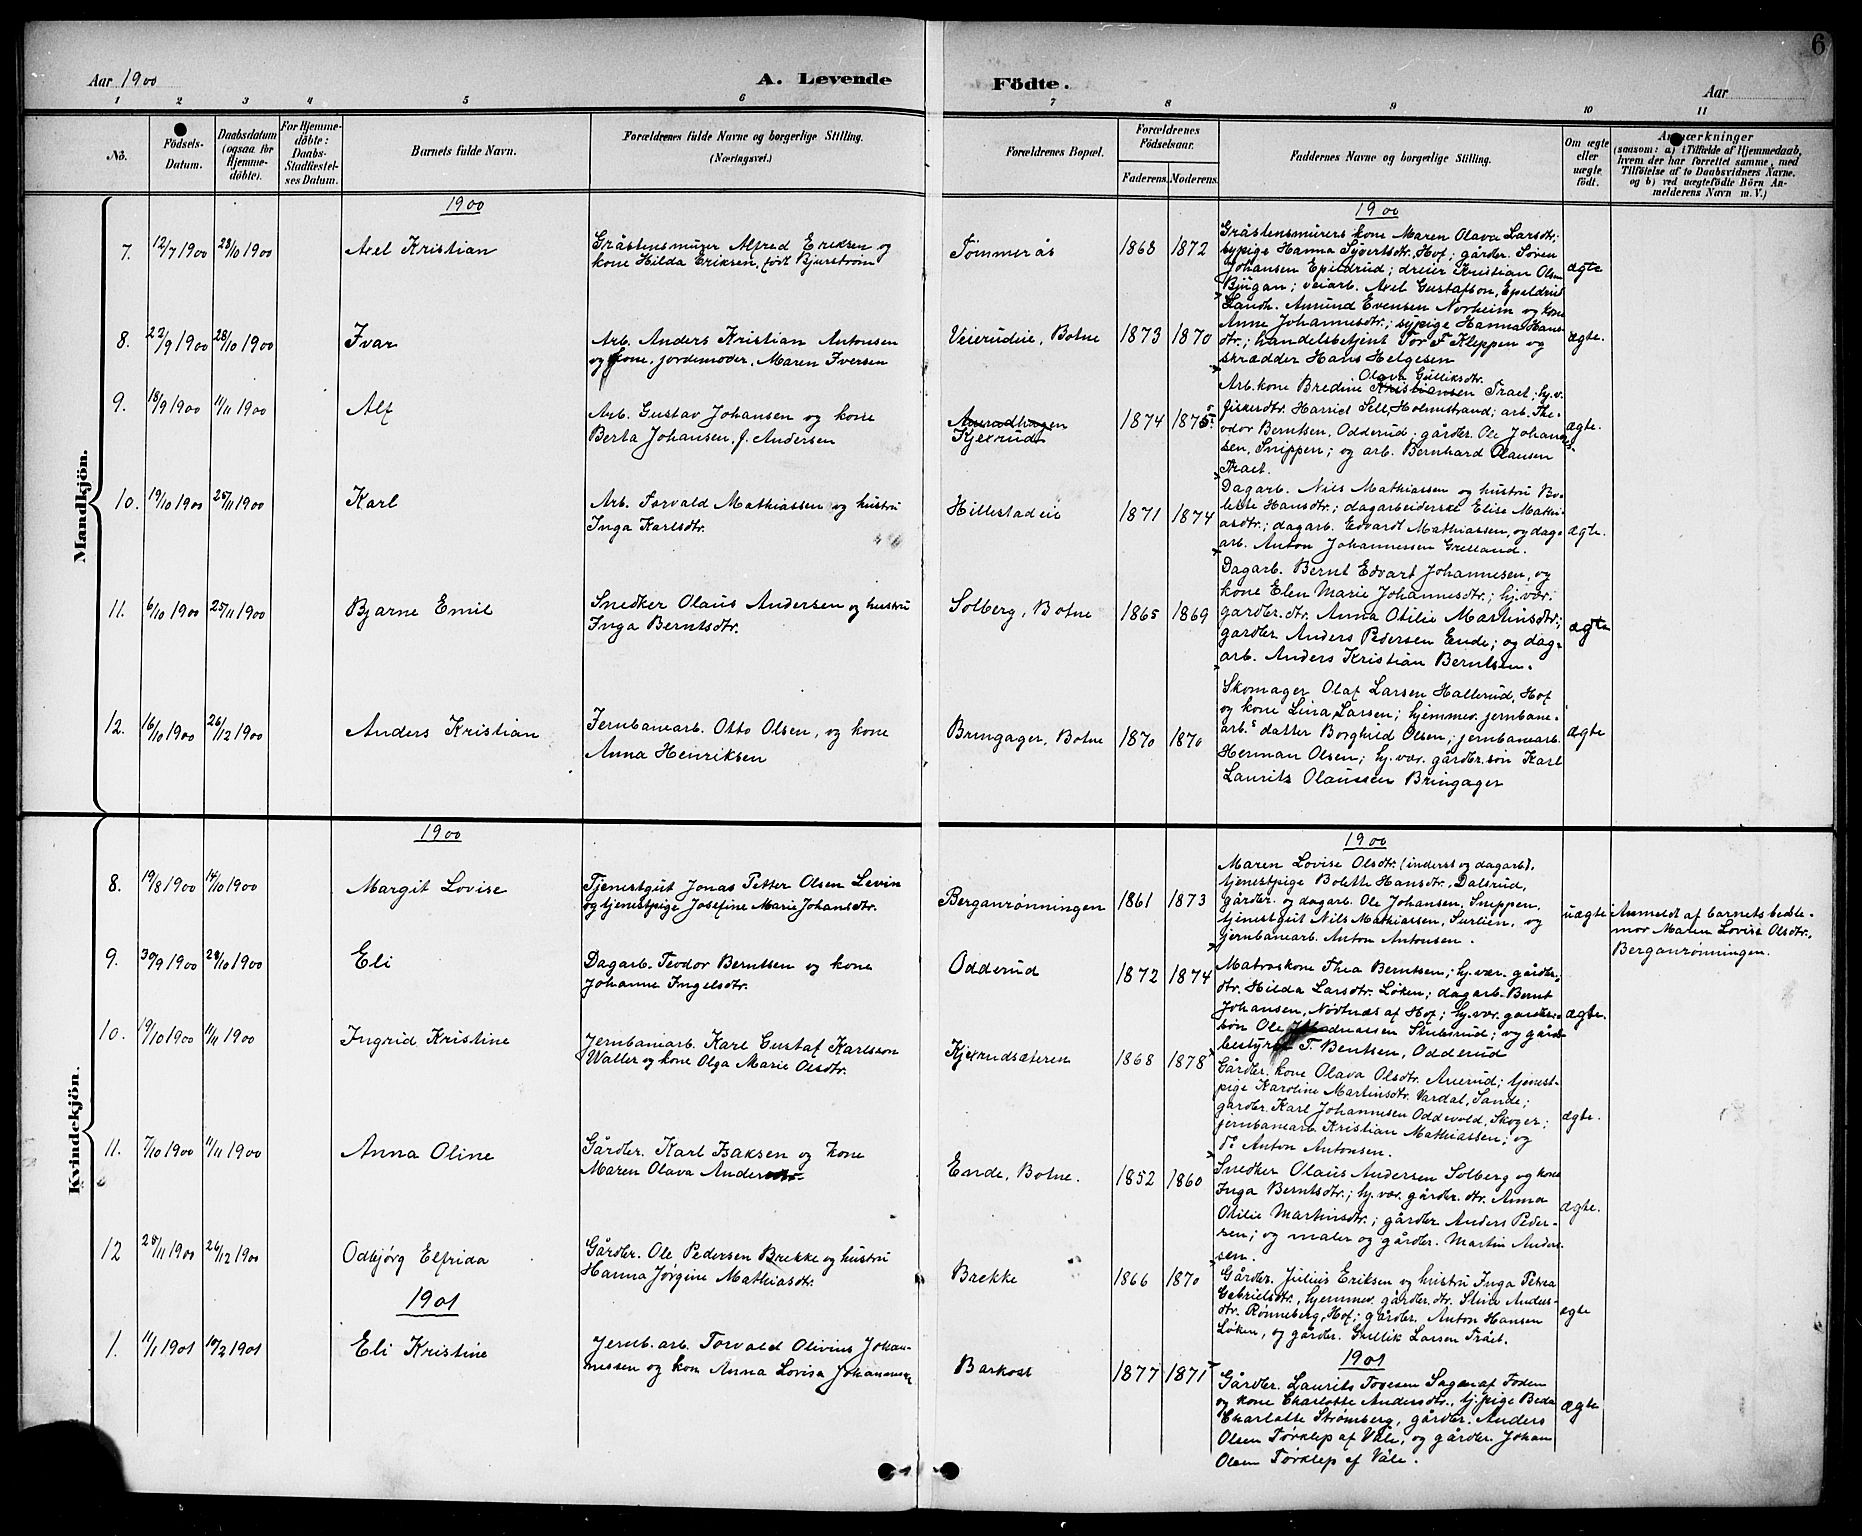 6
Aar 1900
A. Levende Födte.
Aar
1 2 3 4 5 6 7 8 9 10 11
No.
Födsels-Datum.
Daabsdatum (ogsaa for Hjemme-döbte).
For Hjemme-döbte: Daabs-Stadfæstel-ses Datum.
Barnets fulde Navn.
Forældrenes fulde Navne og borgerlige Stilling. (Næringsvei.)
Forældrenes Bopæl.
Forældrenes Födselsaar.
Faderens. Moderens.
Faddernes Navne og borgerlige Stilling.
Om ægte eller uægte födt.
Anmærkninger
(saasom: a) i Tilfælde af Hjemmedaab,
hvem der har forrettet samme, med
Tilföielse af to Daabsvidners Navne.
og b) ved uægtefödte Börn An-
melderens Navn m. V.)
Mandkjön.
1900
1900
7. 12/7 1900 28/10 1900 Axel Kristian
Gråstensmurer Alfred Eriksen og
kone Hilda Eriksen, født Bjurstrøm
Tømmerås 1868 1872
Gråstensmurers kone Maren Olava Larsdtr;
sypige Hanna Syvertsdtr, Hof; gårdbr. Søren
Johansen Epildrud; dreier Kristian Olsen
Bjugan; veiarb. Axel Gustafson, Epeldrud
ægte
8. 22/9 1900 28/10 1900 Ivar
Arb. Anders Kristian Antonsen
og kone, jordemoder, Maren Iversen
Veierudeie, Botne 1873 1870
Landh. Amund Evensen Norheim og kone
Anne Johannesdtr.; sypige Hanna Hans-
dtr.; handelsbetjent Tor F. Kleppen og
skrædder Hans Helgesen
ægte.
9. 18/9 1900 11/11 1900 Alf
Arb. Gustav Johansen og kone
Berta Johansen, f. Andersen
Kjexrud 1874 1875
Olava Gulliksdtr.
Arb. kone Bredine Kristiansen Traet; hj. v.
fiskerdtr. Harriet Sell, Holmestrand; arb. The-
odor Berntsen, Odderud; gårdbr. Ole Johan-
sen, Snippen; og arb. Bernhard Olausen
Traet.
ægte.
10. 19/10 1900 25/11 1900 Karl
Arb. Torvald Mathiassen og hustru
Inga Karlsdtr.
Hillestadeie 1871 1874
Dagarb. Nils Mathiassen og hustru Bo-
lette Hansdtr.; dagarbeiderske Elise Mathi-
asdtr.; dagarb. Edvard Mathiassen, og dag-
arb. Anton Johannessen Grelland.
ægte.
11. 6/10 1900 25/11 1900 Bjarne Emil
Snedker Olaus Andersen og hustru
Inga Berntsdtr.
Solberg, Botne 1865 1869
Dagarb. Bernt Edvart Johannesen, og
kone Elen Marie Johannesdtr.; hj. vær.
gårdbr. dtr. Anna Otilie Martinsdtr.;
gårdbr. Anders Pedersen Ende; og dag-
arb. Anders Kristian Berntsen.
ægte
12. 16/10 1900 26/12 1900 Anders Kristian
Jernbanearb. Otto Olsen, og kone
Anna Henriksen
Bringager, Botne 1870 1870
Skomager Olaf Larsen Hallerud, Hof
og kone Lina Larsen; hjemmev. jernbane-
arb.s datter Borghild Olsen; jernbanearb.
Herman Olsen; hj. vær. gårdbr. søn Karl
Laurits Olaussen Bringager
ægte
Kvindekjön.
1900
1900
8. 19/8 1900 14/10 1900 Margit Lovise
Tjenestgut Jonas Petter Olsen Levin
og tjenestpige Josefine Marie Johansdtr.
Berganrønningen 1861 1873
Maren Lovise Olsdtr. (inderst og dagarb).
tjenestpige Bolette Hansdtr., Dalsrud,
gårdbr. og dagarb. Ole Johansen, Snippen,
tjenestgut Nils Mathiassen, Surlien, og
jernbanearb. Anton Antonsen.
uægte
Anmeldt af barnets bedste-
mor Maren Lovise Olsdtr.,
Berganrønningen.
9. 30/9 1900 28/10 1900 Eli
Dagarb. Teodor Berntsen og kone
Johanne Ingelsdtr.
Odderud 1872 1874
Matroskone Thea Berntsen; hj. vær. gårdbr.
dtr. Hilda Larsdtr. Løken; dagarb. Bernt
Johansen, Nøtnæs af Hof; hj. vær. gårdbr.
søn Ole Stubsrud; og gård-
bestyrer T. Bentsen, Odderud
ægte.
10. 19/10 1900 11/11 1900 Ingrid Kristine
Jernbanearb. Karl Gustaf Karlsson
Waller og kone Olga Marie Olsdtr.
Kjexrudsæteren 1868 1878
Gårdbr. kone Olava Olsdtr. Auerud; tjenest-
pige Karoline Martinsdtr. Vardal, Sande;
gårdbr. Karl Johannesen Oddevold, Skoger;
jernbanearb. Kristian Mathiassen; og
do Anton Antonsen.
ægte.
11. 7/10 1900 11/11 1900 Anna Oline
Gårdbr. Karl Isaksen og kone
Maren Olava Andersdtr.
Ende, Botne. 1852 1860
Snedker Olaus Andersen Solberg og kone
Inga Berntsdtr.; hj. vær. gårdbr. dtr. Anna
Otilie Martinsdtr.; gårdbr. Anders Peder-
sen; og maler og gårdbr. Martin Anders-
sen.
ægte.
12 25/11 1900 26/12 1900 Odbjørg Elfrida
Gårdbr. Ole Pedersen Brekke og hustru
Hanna Jørgine Mathiasdtr.
Brekke 1866 1870
Gårdbr. Julius Eriksen og hustru Inga Petrea
Gebrielsdtr., hjemmev. gårdbr. dtr. Stina Anders-
dtr. Rønneberg, Hof; gårdbr. Anton Hansen
Løken, og gårdbr. Gullik Larsen Traet.
ægte
1901
1901
1. 11/1 1901 10/2 1901 Eli Kristine
Jernb. arb. Torvald Olivius Johan-
nessen og kone Anna Lovisa Johannesen
Barkost 1877 1871
Gårdbr. Laurits Tovesen Sagen af Foden
og kone Charlotte Andersdtr., tj. pige Beda
Charlotte Strømberg, gårdbr. Anders
Olsen Tørklep af Våle, og gårdbr. Johan
Olsen Tørklep af Våle.
ægte